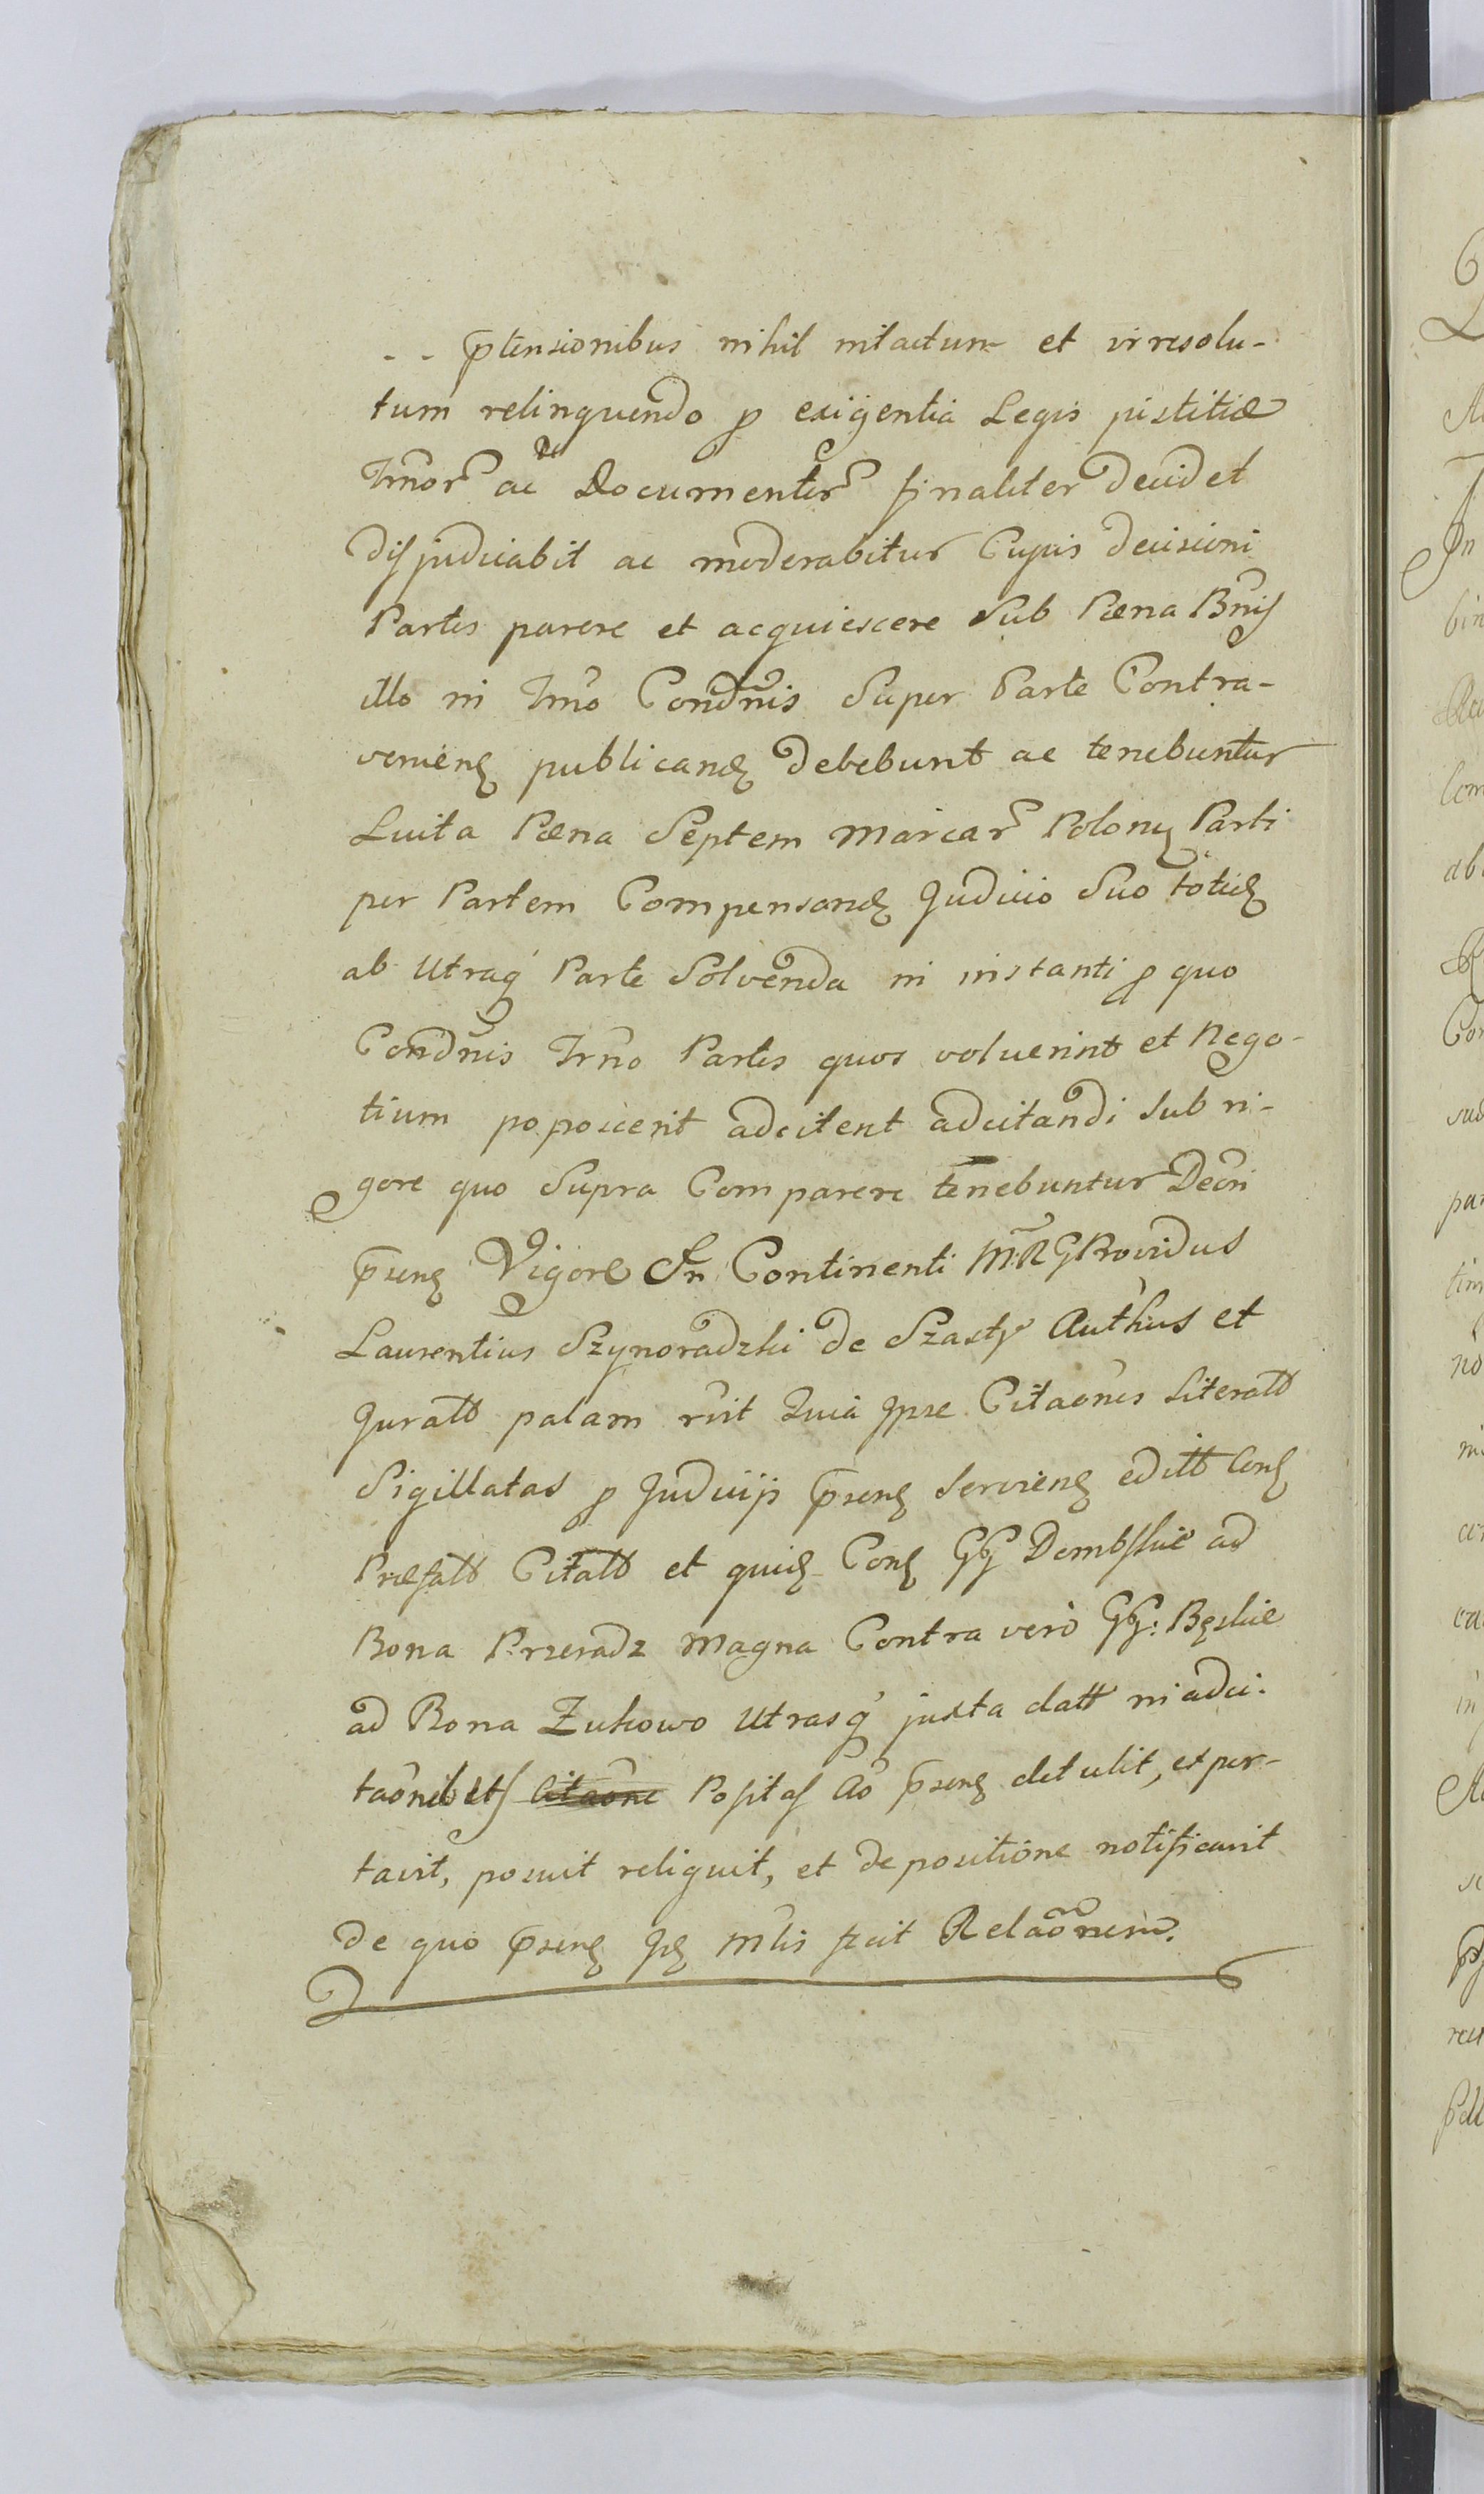 - - p̄tensionibus nihil intactum et irresolu-
tum relinquendo p exigentia Legis justitiæ
Trnor ac Documentor finaliter decidet
disjudicabit ac moderabitur Cujus decisioni
Partes parere et acquiescere Sub Pæna Bnis
illo in Trno Condnis Super Parte Contra-
venien publicand debebunt ac tenebuntur
Luita Pæna Septem Marcar Polon Parti
per Partem Compensand Judicio Suo totid
ab Utraq Parte Solvenda in instanti p quo
Condnis Trno Partes quos voluerint et Nego-
tium poposcerit adcitent adcitandi Sub ri-
gore quo Supra Comparere tenebuntur Decri
p̄sen Vigore In Continenti M: R GProvidus
Laurentius Szynoradzki de Szasty Authus et
Juratt palam rvit Quia Ipse Citaones Literatt
Sigillatas p Judicijs p̄sen Servien editt Con
Præfatt Citatt et quid Con GG Dembskie ad
Bona Przeradz Magna Contra vero GG: Bęskie
ad Bona Zukowo Utrasq juxta datt in adci-
taonib Ets Citaone Positas Ao p̄sen detulit, expor-
tavit, posuit reliquit, et de positione notificavit
de quo p̄sen Id Mlis fecit Relaonem.